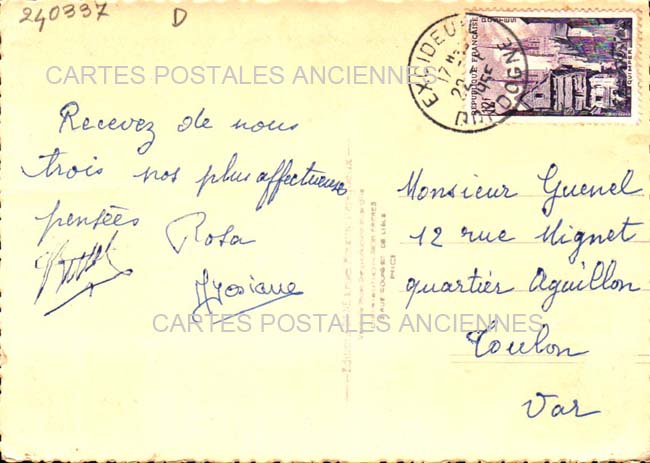 240337
D
EXCIDEUIL
DORDOGNE
REPUBLIQUE FRANÇAISE
POSTES
QUIMPER
CARTES POSTALES ANCIENNES
Recevez de nous
trois nos plus affectueuses
pensées
Rosa
Josiane
Monsieur Guenel
12 rue Mignet
quartier Aguillon
Toulon
Var
CARTES POSTALES ANCIENNES